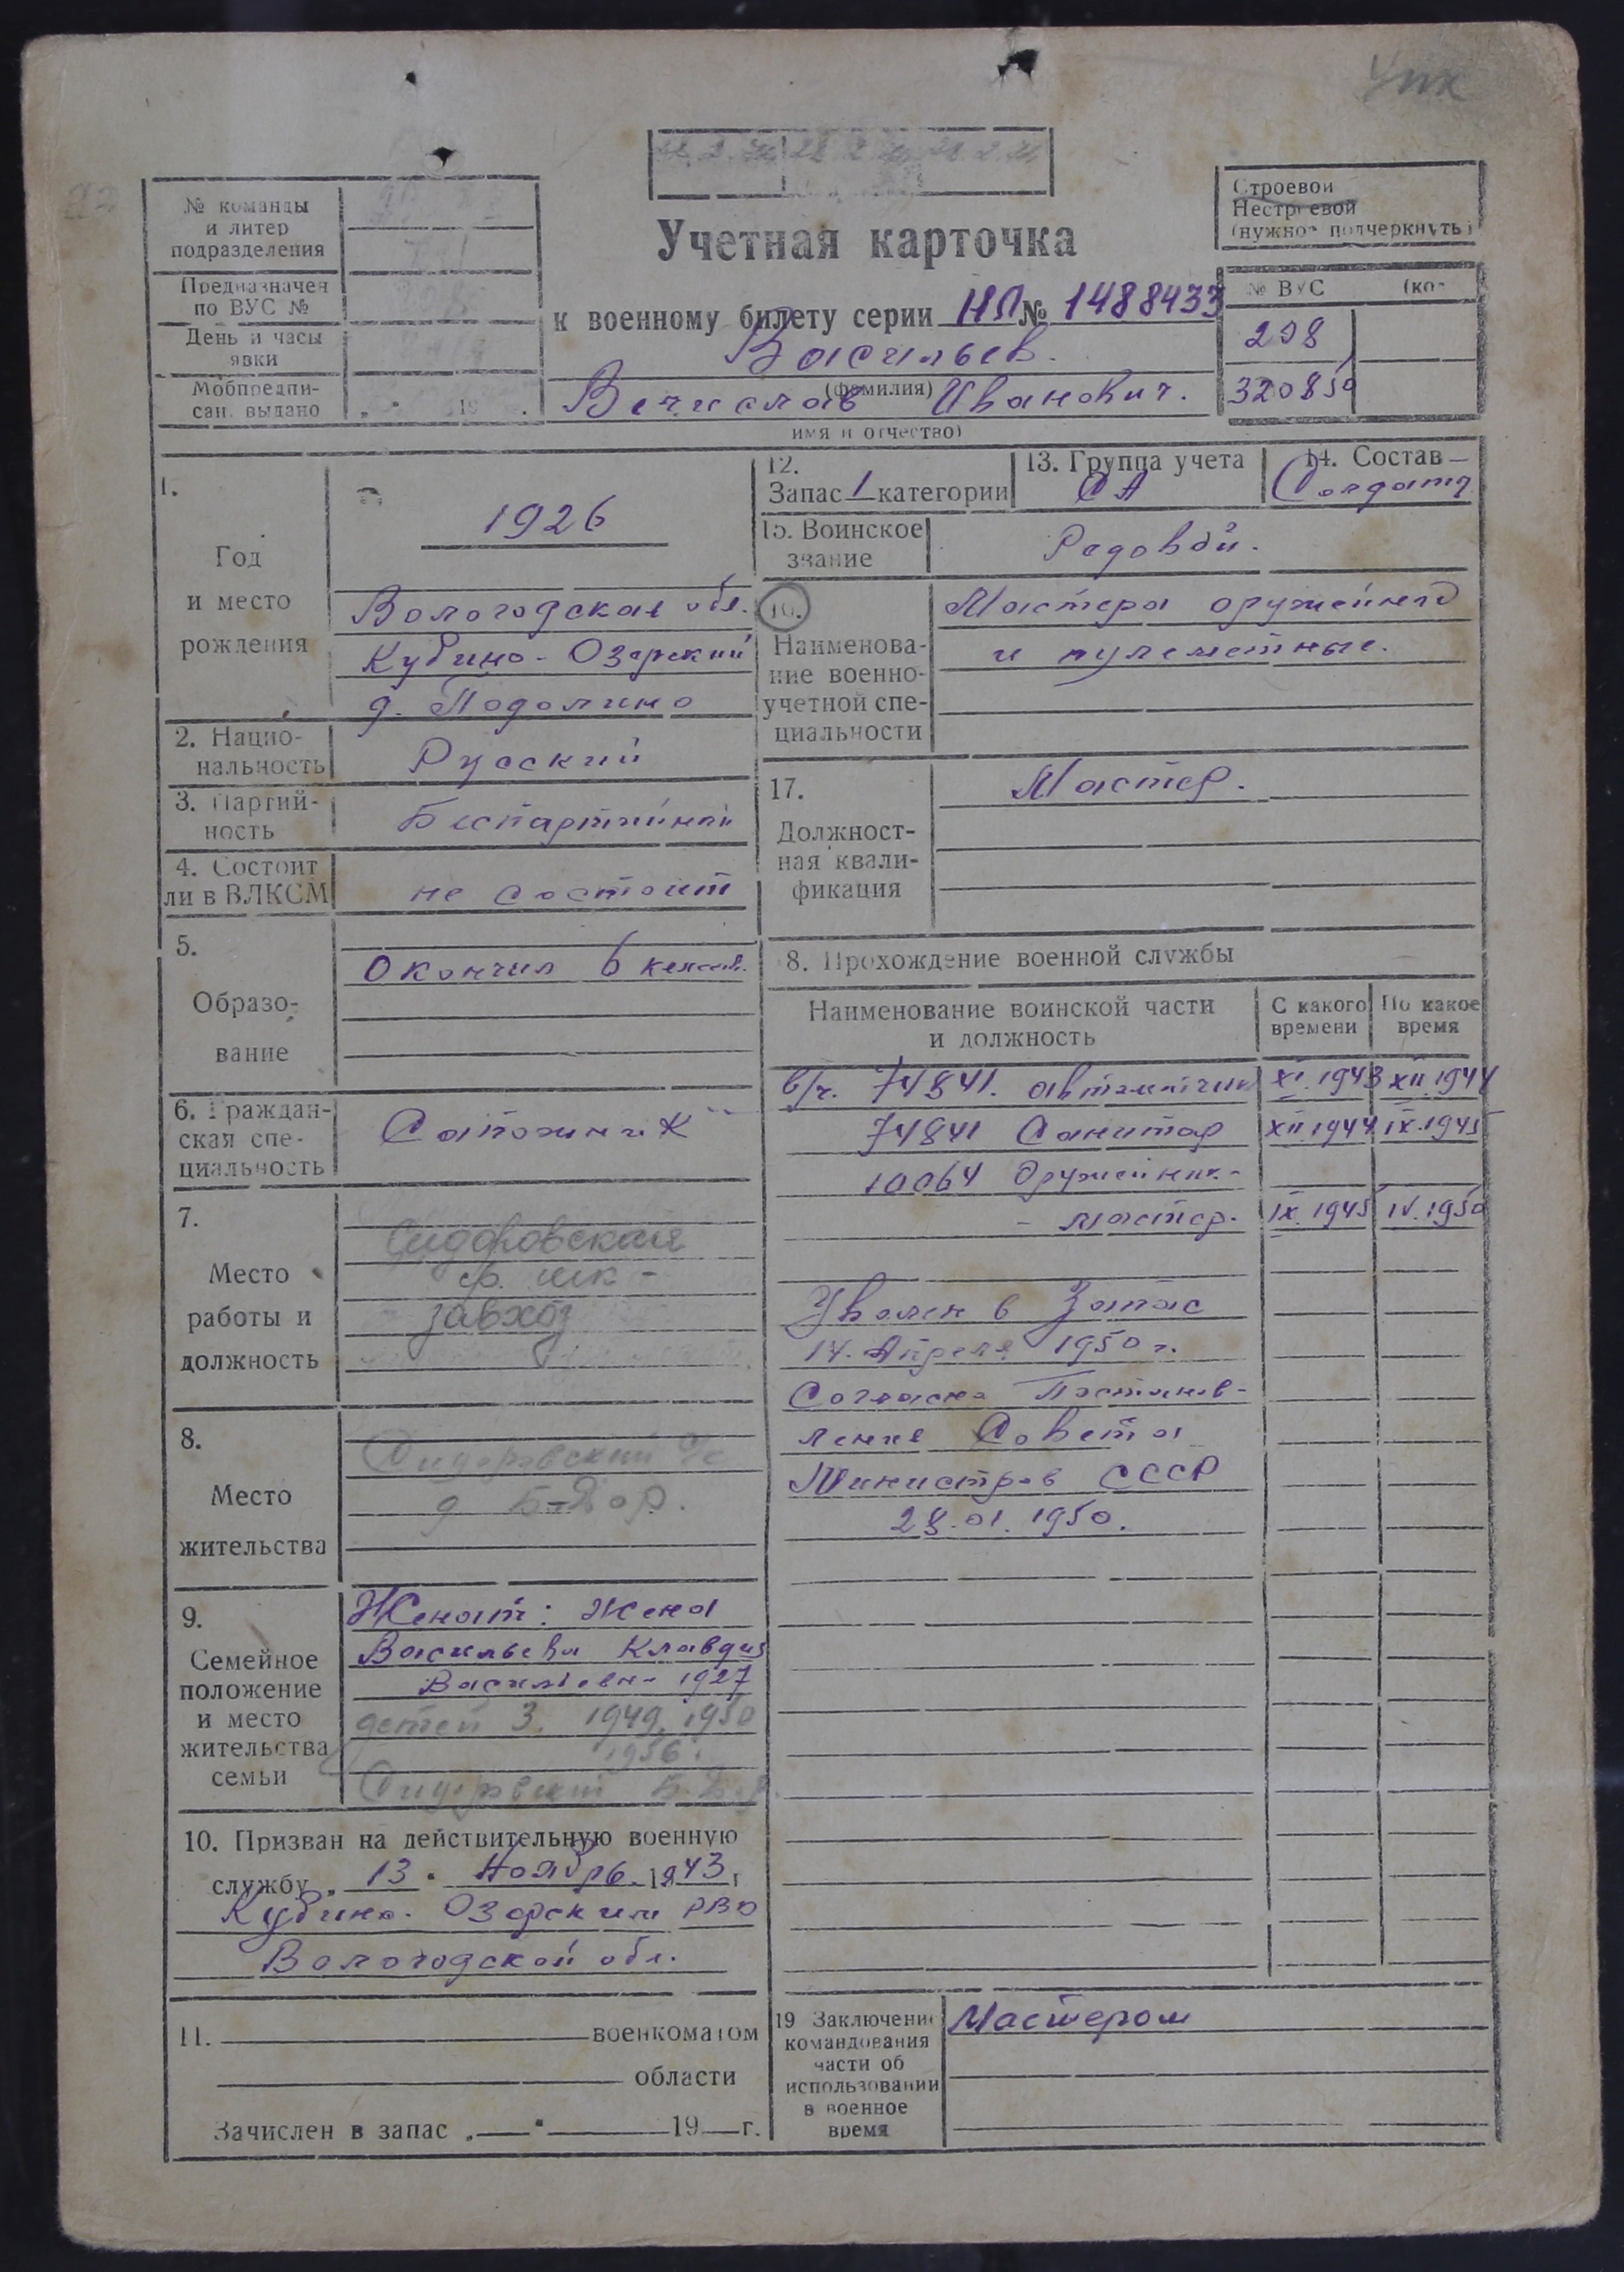 Упк
Строевой
Нестроевой
(нужное подчеркнуть)
№ команды
и литер
подразделения
Предназначен
по ВУС №
День и часы
явки
Мобпредпи-
сан. выдано „ " 19 .
Учетная карточка
к военному билету серии НЛ № 1488433
Васильев.
(фамилия)
Вячислав Иванович.
имя и отчество)
№ ВУС (ко-
298
320850
1.
Год
и место
рождения
1926
Вологодская обл.
Кубино-Озерский
д. Подолино
2. Нацио-
нальность
Русский
3. Партий-
ность
Беспартийный
4. Состоит
ли в ВЛКСМ
не состоит
5.
Образо-
вание
Окончил 6 класс.
6. Граждан-
ская спе-
циальность
Сапожник
7.
Место
работы и
должность
Сидоровская
ср. шк-
завхоз
8.
Место
жительства
Сидоровский с/с
д Б-Двор.
9.
Семейное
положение
и место
жительства
семьи
Женат: жена
Васильева Клавдия
Васильевн- 1927
детей 3. 1949, 1950
1956.
Сидоровский Б-Д-р
10. Призван на действительную военную
службу „ 13 " Ноябрь 1943 г
Кубино-Озерским РВК
Вологодской обл.
11. военкоматом
области
Зачислен в запас „ " 19 г.
12.
Запас 1 категории
13. Группа учета
СА
14. Состав
Солдат
15. Воинское
звание
Рядовой.
16.
Наименова-
ние военно-
учетной спе-
циальности
Мастера оружейные
и пулеметные.
17.
Должност-
ная квали-
фикация
Мастер.
8. Прохождение военной службы
Наименование воинской части
и должность
С какого
времени
По какое
время
в/ч. 74841. автоматчик XI.1943 XII.1944
74841 Санитар XII.1944 IX.1945
10064 Оружейник-
- мастер. IX.1945 IV.1950
Уволен в Запас
14. Апреля 1950 г.
Согласно Постанов-
ления Совета
Министров СССР
28.01.1950.
19 Заключение
командования
части об
использовании
в военное
время
Мастером